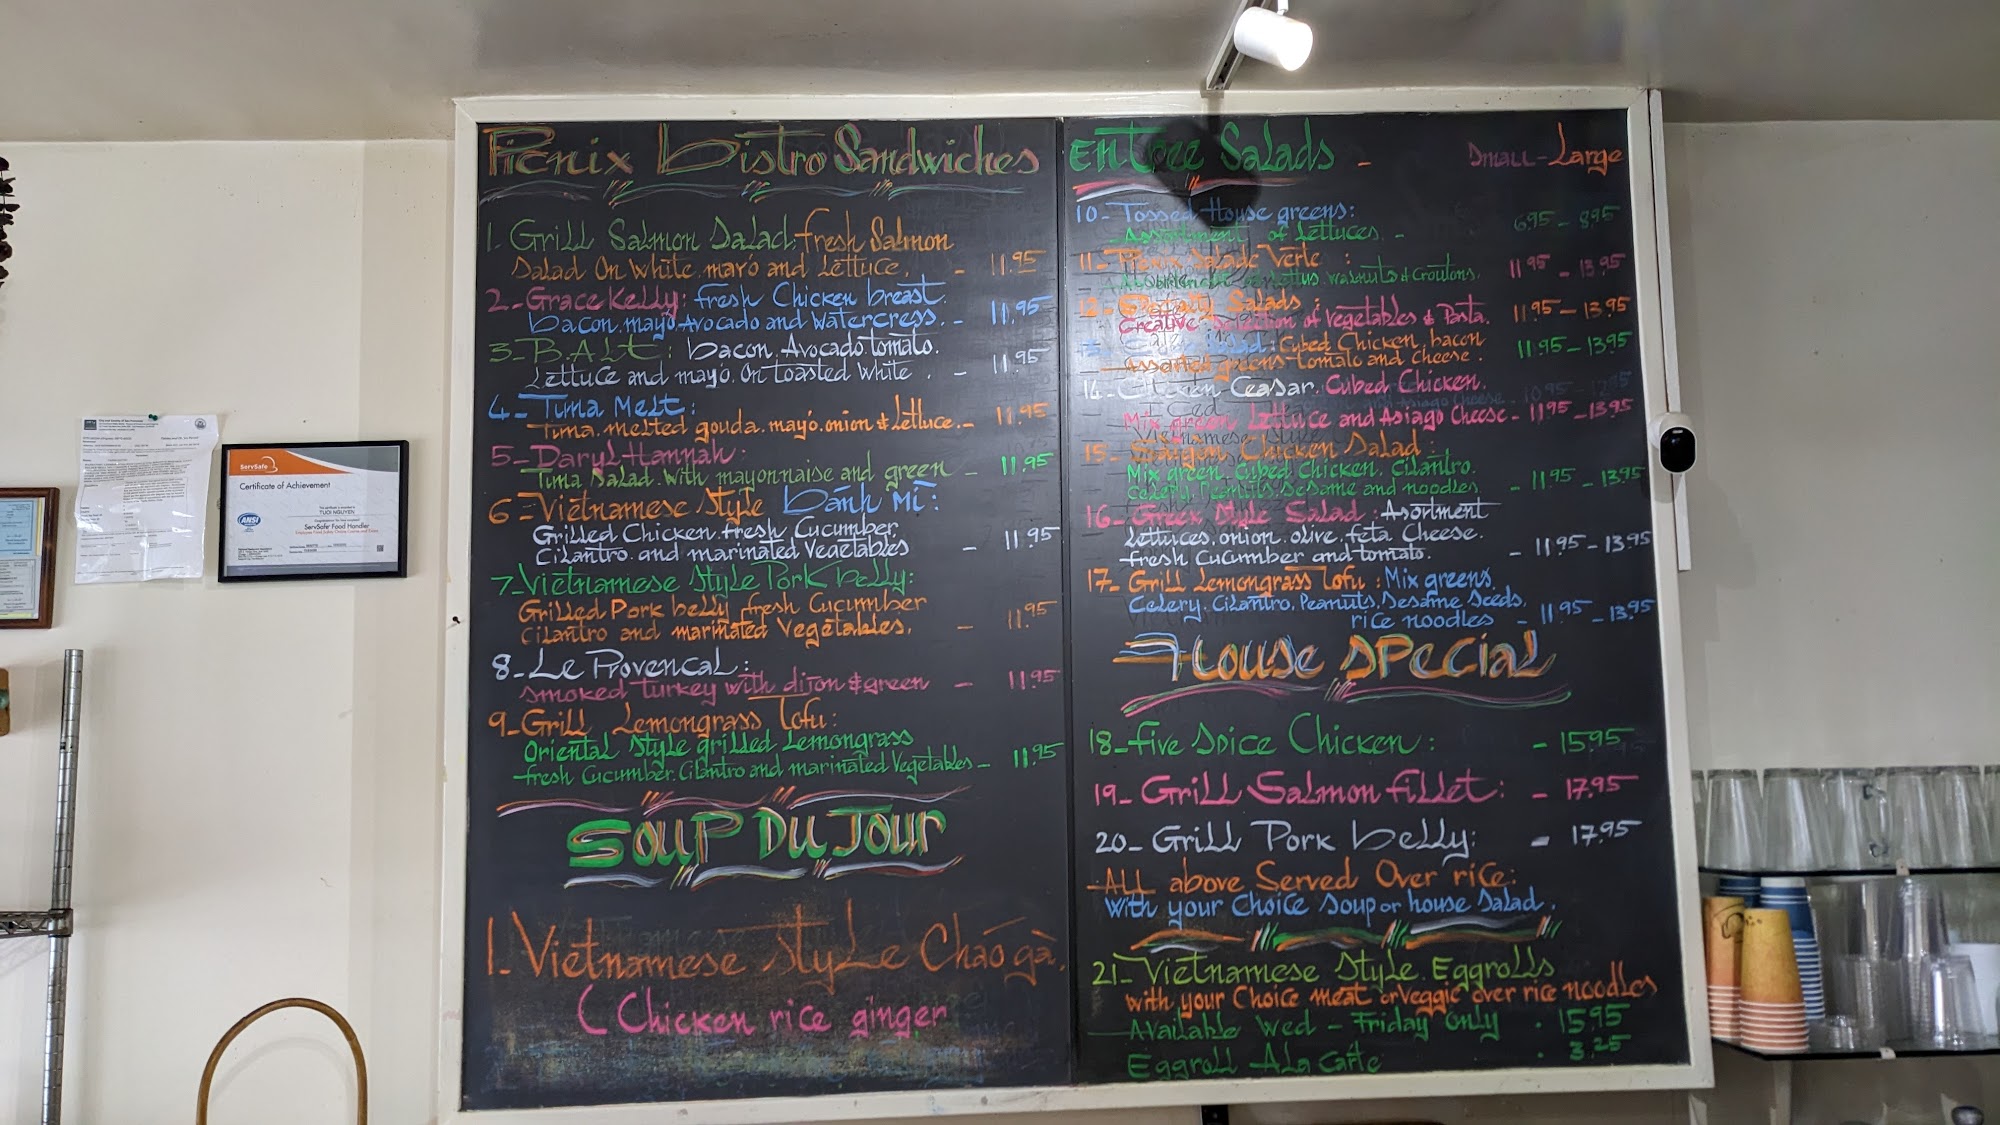 Picnix Bistro Sandwiches
1- Grill Salmon Salad: fresh Salmon
Salad On White mayo and Lettuce. - 11.95
2- Grace Kelly: fresh Chicken breast
bacon mayo Avocado and Watercress. - 11.95
3- B.A.L.T: bacon. Avocado tomato.
Lettuce and mayo. On toasted White. - 11.95
4- Tuna Melt:
Tuna. melted gouda. mayo. onion & Lettuce. - 11.95
5- Daryl Hannah:
Tuna Salad. With mayonnaise and green - 11.95
6- Vietnamese Style Banh Mi:
Grilled Chicken fresh Cucumber.
Cilantro. and marinated Vegetables - 11.95
7- Vietnamese Style Pork belly:
Grilled Pork belly fresh Cucumber
Cilantro and marinated Vegetables. - 11.95
8- Le Provencal:
smoked turkey with dijon & green - 11.95
9- Grill Lemongrass Tofu:
Oriental Style grilled Lemongrass
fresh Cucumber. Cilantro and marinated Vegetables - 11.95
Soup Du Jour
1- Vietnamese Style Cháo gà.
( Chicken rice ginger
Entree Salads - Small - Large
10- Tossed House greens:
- Assortment of Lettuces. - 6.95 - 8.95
11- Picnix Salade Verte:
walnuts & Croutons. 11.95 - 13.95
12- Specialty Salads:
Creative Selection of Vegetables & Pasta. 11.95 - 13.95
Salad: Cubed Chicken, bacon
Assorted greens tomato and Cheese. 11.95 - 13.95
14- Chicken Ceasar. Cubed Chicken.
Mix green Lettuce and Asiago Cheese - 11.95 - 13.95
15- Saigon Chicken Salad:
Mix green. Cubed Chicken. Cilantro.
Celery. Peanuts. Sesame and noodles - 11.95 - 13.95
16- Greek Style Salad: Asortment
Lettuces. onion. olive. feta Cheese.
fresh Cucumber and tomato. - 11.95 - 13.95
17- Grill Lemongrass Tofu: Mix greens
Celery. Cilantro. Peanuts. Sesame Seeds.
rice noodles - 11.95 - 13.95
House Special
18- five Spice Chicken: - 15.95
19- Grill Salmon fillet: - 17.95
20- Grill Pork belly: - 17.95
- ALL above Served Over rice:
With your Choice Soup or house Salad.
21- Vietnamese Style Eggrolls
with your Choice meat or Veggie over rice noodles
- Available Wed - Friday only . 15.95
Eggroll ALa Carte . 3.25
ServSafe
Certificate of Achievement
TUOI NGUYEN
ServSafe Food Handler
ANSI